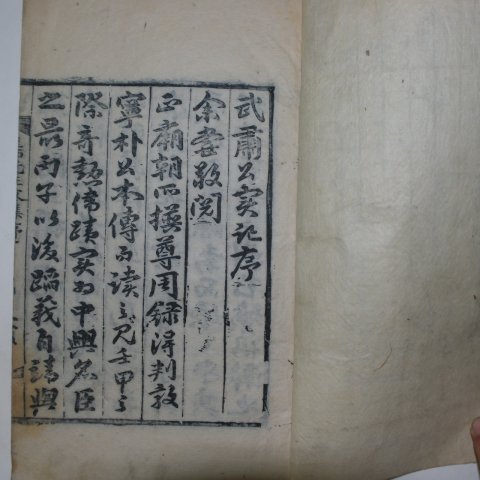 武肅公实记序
余嘗敬閱
正廟朝所撰尊周錄得判敦
寧朴公本傳而讀之见壬甲之
際奇勲偉蹟实为中興名臣
之最丙子以後蹈義自靖與